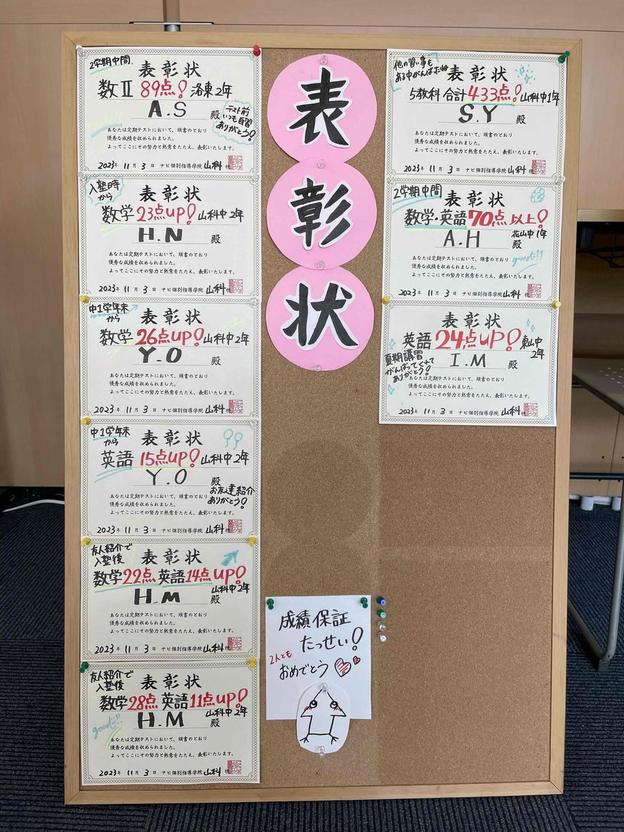 2学期中間
表彰状
数Ⅱ 89点! 洛東2年
A.S 殿
テスト前
いつも自習
ありがとう!
あなたは定期テストにおいて、頭書のとおり
優秀な成績を収められました。
よってここにその努力と熱意をたたえ、表彰いたします。
2023年 11月 3日 ナビ個別指導学院 山科校
入塾時
から
表彰状
数学 23点up! 山科中2年
H.N 殿
あなたは定期テストにおいて、頭書のとおり
優秀な成績を収められました。
よってここにその努力と熱意をたたえ、表彰いたします。
2023年 11月 3日 ナビ個別指導学院 山科校
中1学年末
から
表彰状
数学 26点up! 山科中2年
Y.O 殿
あなたは定期テストにおいて、頭書のとおり
優秀な成績を収められました。
よってここにその努力と熱意をたたえ、表彰いたします。
2023年 11月 3日 ナビ個別指導学院 山科校
中1学年末
から
表彰状
英語 15点up! 山科中2年
Y.O 殿
お友達紹介
ありがとう!
あなたは定期テストにおいて、頭書のとおり
優秀な成績を収められました。
よってここにその努力と熱意をたたえ、表彰いたします。
2023年 11月 3日 ナビ個別指導学院 山科校
友人紹介で
入塾後
表彰状
数学22点 英語14点up!
山科中2年
H.M 殿
あなたは定期テストにおいて、頭書のとおり
優秀な成績を収められました。
よってここにその努力と熱意をたたえ、表彰いたします。
2023年 11月 3日 ナビ個別指導学院 山科校
友人紹介で
入塾後
表彰状
数学28点 英語11点up!
山科中2年
H.M 殿
good!!
あなたは定期テストにおいて、頭書のとおり
優秀な成績を収められました。
よってここにその努力と熱意をたたえ、表彰いたします。
2023年 11月 3日 ナビ個別指導学院 山科校
表
彰
状
成績保証
たっせい!
2人とも
おめでとう
他の習い事も
ある中がんばった
表彰状
5教科合計433点! 山科中1年
S.Y 殿
あなたは定期テストにおいて、頭書のとおり
優秀な成績を収められました。
よってここにその努力と熱意をたたえ、表彰いたします。
2023年 11月 3日 ナビ個別指導学院 山科校
2学期中間
表彰状
数学・英語70点以上!
花山中1年
A.H 殿
good!!
あなたは定期テストにおいて、頭書のとおり
優秀な成績を収められました。
よってここにその努力と熱意をたたえ、表彰いたします。
2023年 11月 3日 ナビ個別指導学院 山科校
表彰状
英語 24点up! 東山中
2年
I.M 殿
夏期講習
がんばってくれて
ありがとう!
あなたは定期テストにおいて、頭書のとおり
優秀な成績を収められました。
よってここにその努力と熱意をたたえ、表彰いたします。
2023年 11月 3日 ナビ個別指導学院 山科校